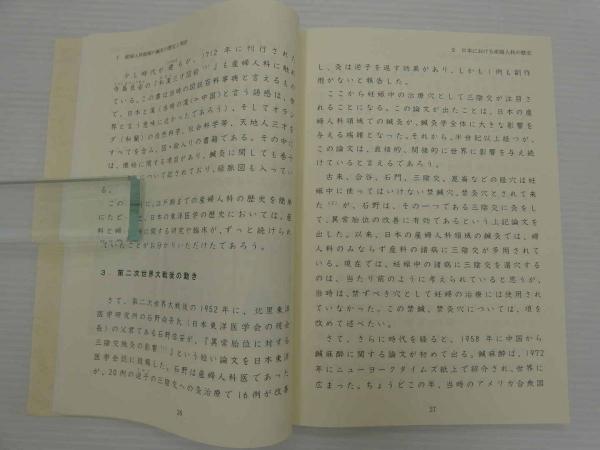 1 産婦人科領域の鍼灸の歴史と現状
少し時代が遡るが、1712年に刊行された
寺島良安の『和漢三才図会』も産婦人科に触れ
ている。この書は当時の図説百科事典と言えるもの
で、日本と漢（当時の漢（≒中国）と言う語感は、世
界と言う意味に近かったであろう）、そしてオラン
ダ（和蘭）の自然科学、社会科学等、天地人三才を
すべてを含み、図・絵入りの書籍である。その中に
は、懐妊に関する項目があり、鍼灸に関しても巻子
について記されており、経脈図も入ってい
る。
この　に、江戸期までの産婦人科の歴史を簡単
にたど　、日本の東洋医学の歴史においては、産
科と婦　に関する研究や臨床が、ずっと続けられ
ていたことがお分かりいただけたであろう。
3．第二次世界大戦後の動き
さて、第二次世界大戦後の1952年に、北里東洋
医学研究所の石野尚吾氏（日本東洋医学会の現会
長）の父君である石野信安が、『異常胎位に対する
三陰交施灸の影響』という短い論文を日本東洋
医学会誌に投稿した。石野は産婦人科医であった
が、20例の逆子の三陰交への灸治療で16例が改善
26
2 日本における産婦人科の歴史
し、灸は逆子を返す効果があり、しかも1例も副作
用がないと報告した。
ここから妊娠中の治療穴として三陰交が注目さ
れることになる。この論文が出たことは、日本の産
婦人科領域での鍼灸が、鍼灸学全体に大きな影響を
与える端緒となった。それから、半世紀以上経つが、
この論文は、直接的、間接的に世界に影響を与え続
けていると言えるであろう。
古来、合谷、石門、三陰交、崑崙などの経穴は妊
娠中に使ってはいけない禁鍼穴、禁灸穴とされて来
たが、石野は、その一つである三陰交に灸をし
て、異常胎位の改善に有効であるという上記論文を
出した。以来、日本の産婦人科領域の鍼灸では、婦
人科のみならず産科の諸病に三陰交が多用されて
いる。現在では、妊娠中の諸病に三陰交を選穴する
のは、当たり前のように考えられていると思うが、
当時は、禁ずべき穴として妊婦の治療には使用され
ていなかった。この禁鍼、禁灸穴については、項を
改めて述べたい。
さて、さらに時代を経ると、1958年に中国から
鍼麻酔に関する論文が初めて出る。鍼麻酔は、1972
年にニューヨークタイムズ紙上で紹介され、世界に
広まった。ちょうどこの年、当時のアメリカ合衆国
27